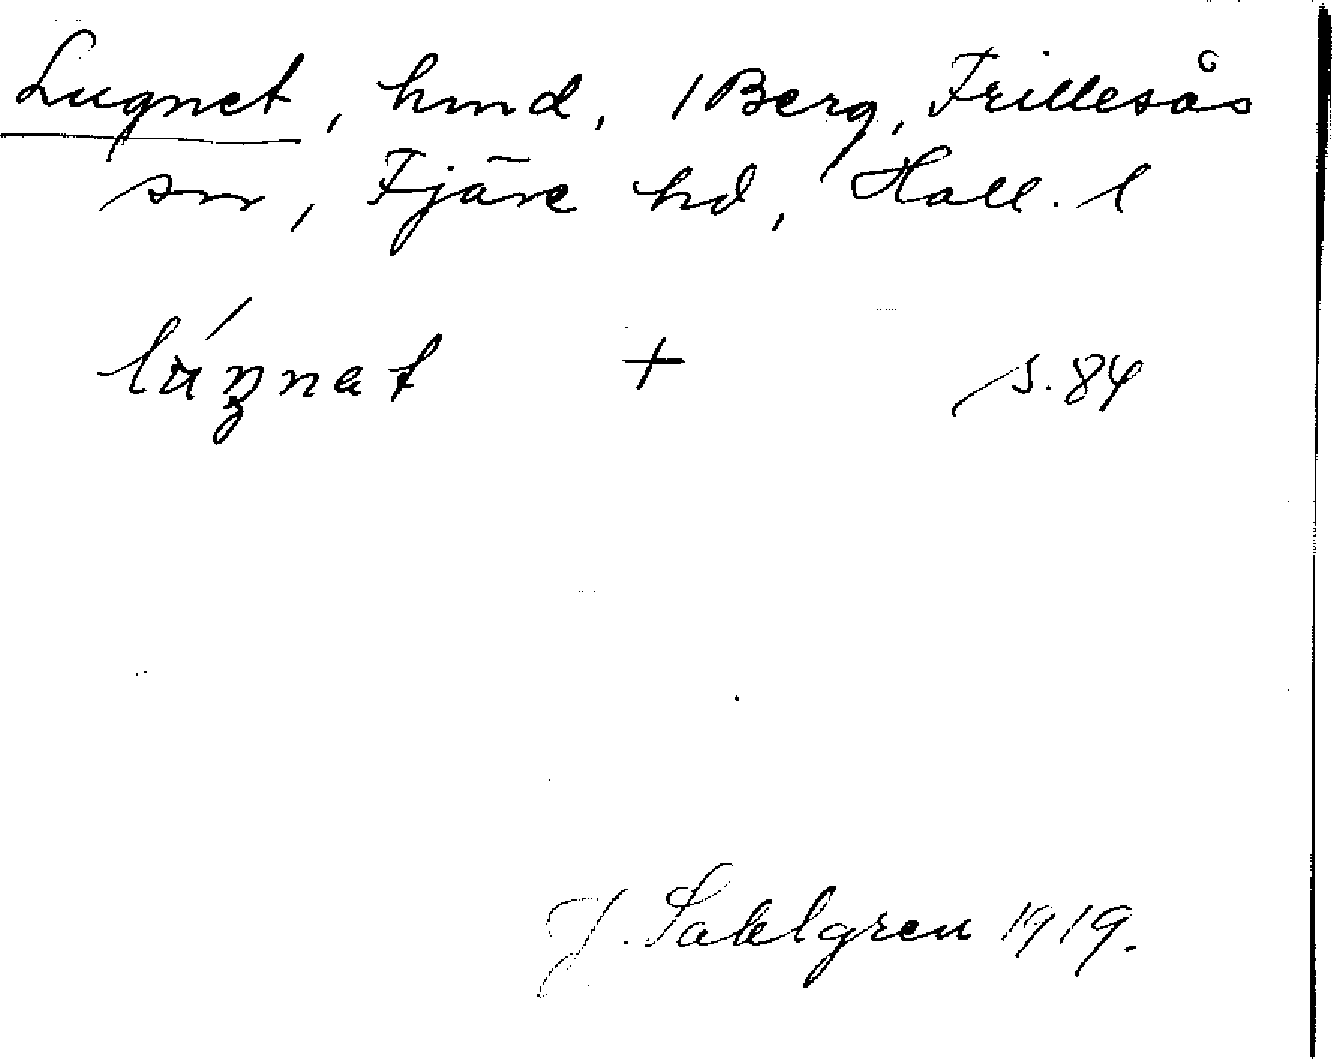 Lugnet, hmd. / Berg, Frillesås
sn, Fjäre hd, Hall. l
+ s. 84
J. Sahlgren 1919.